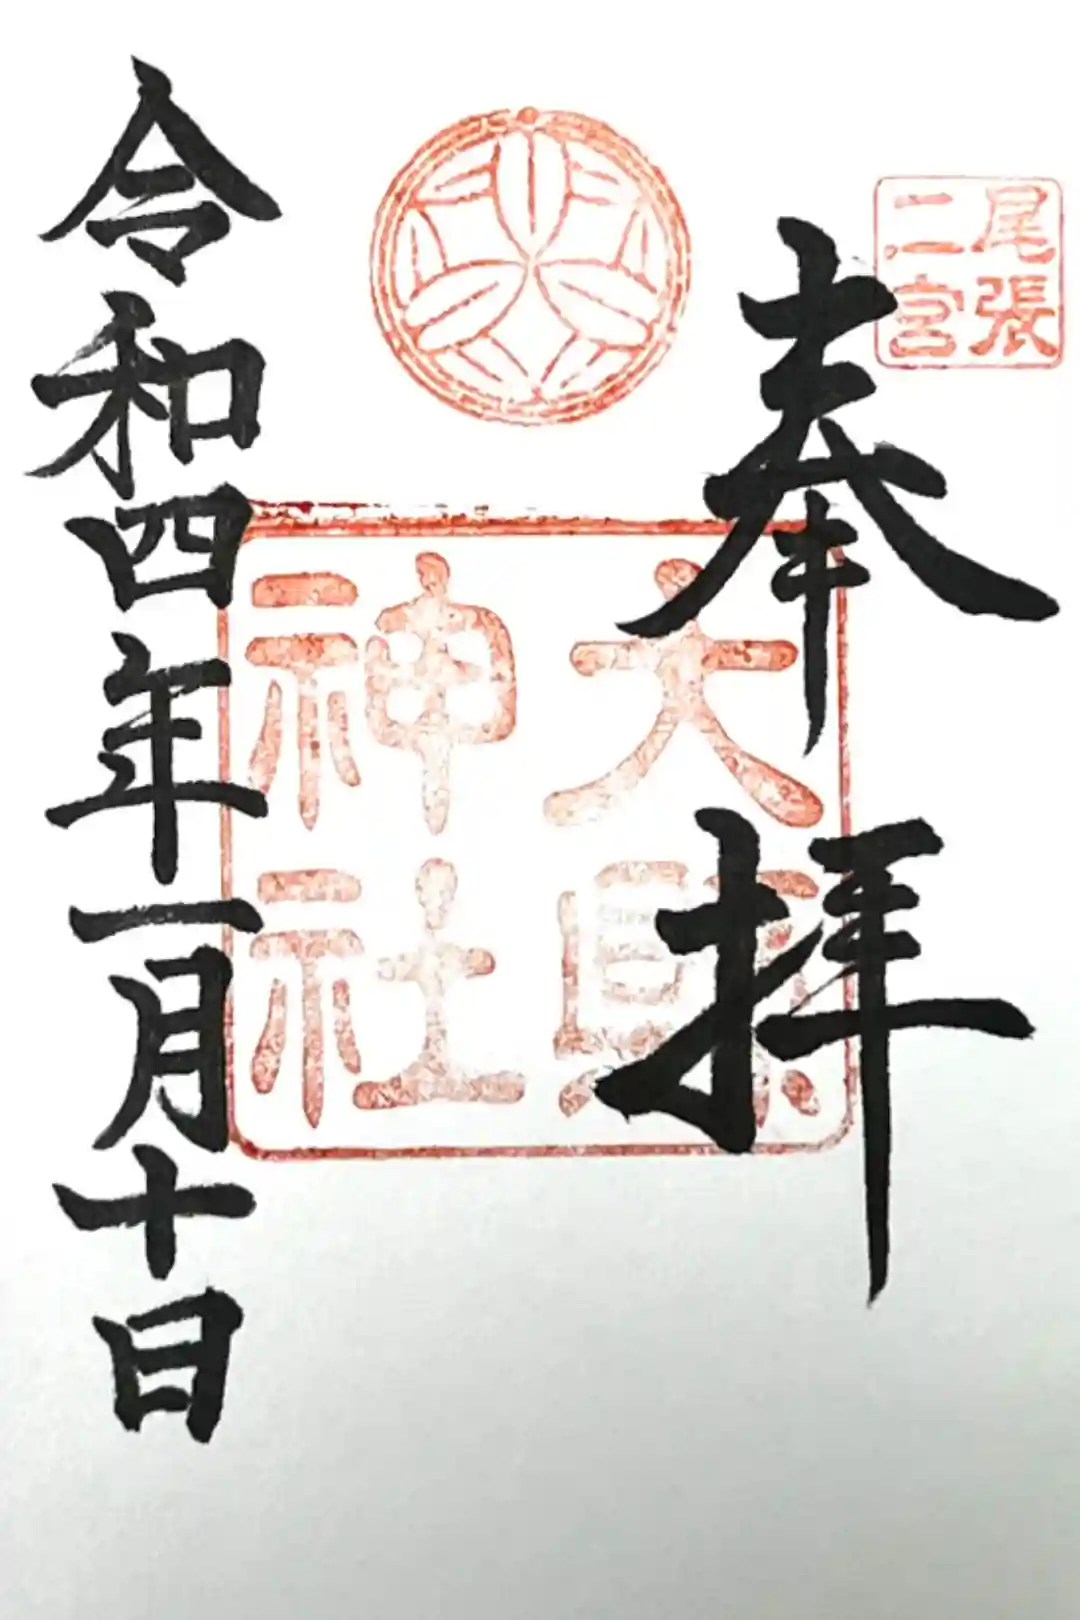 尾張
二宮
奉拝
大縣
神社
令和四年一月十日